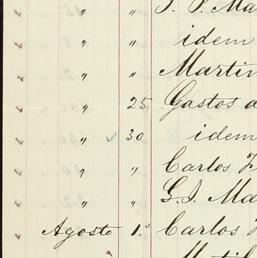 " " J. P. Ma
" " idem
" " Martin
" 25 Gastos a
" 30 idem
" " Carlos
" " G. I. Ma
Agosto 1.º Carlos